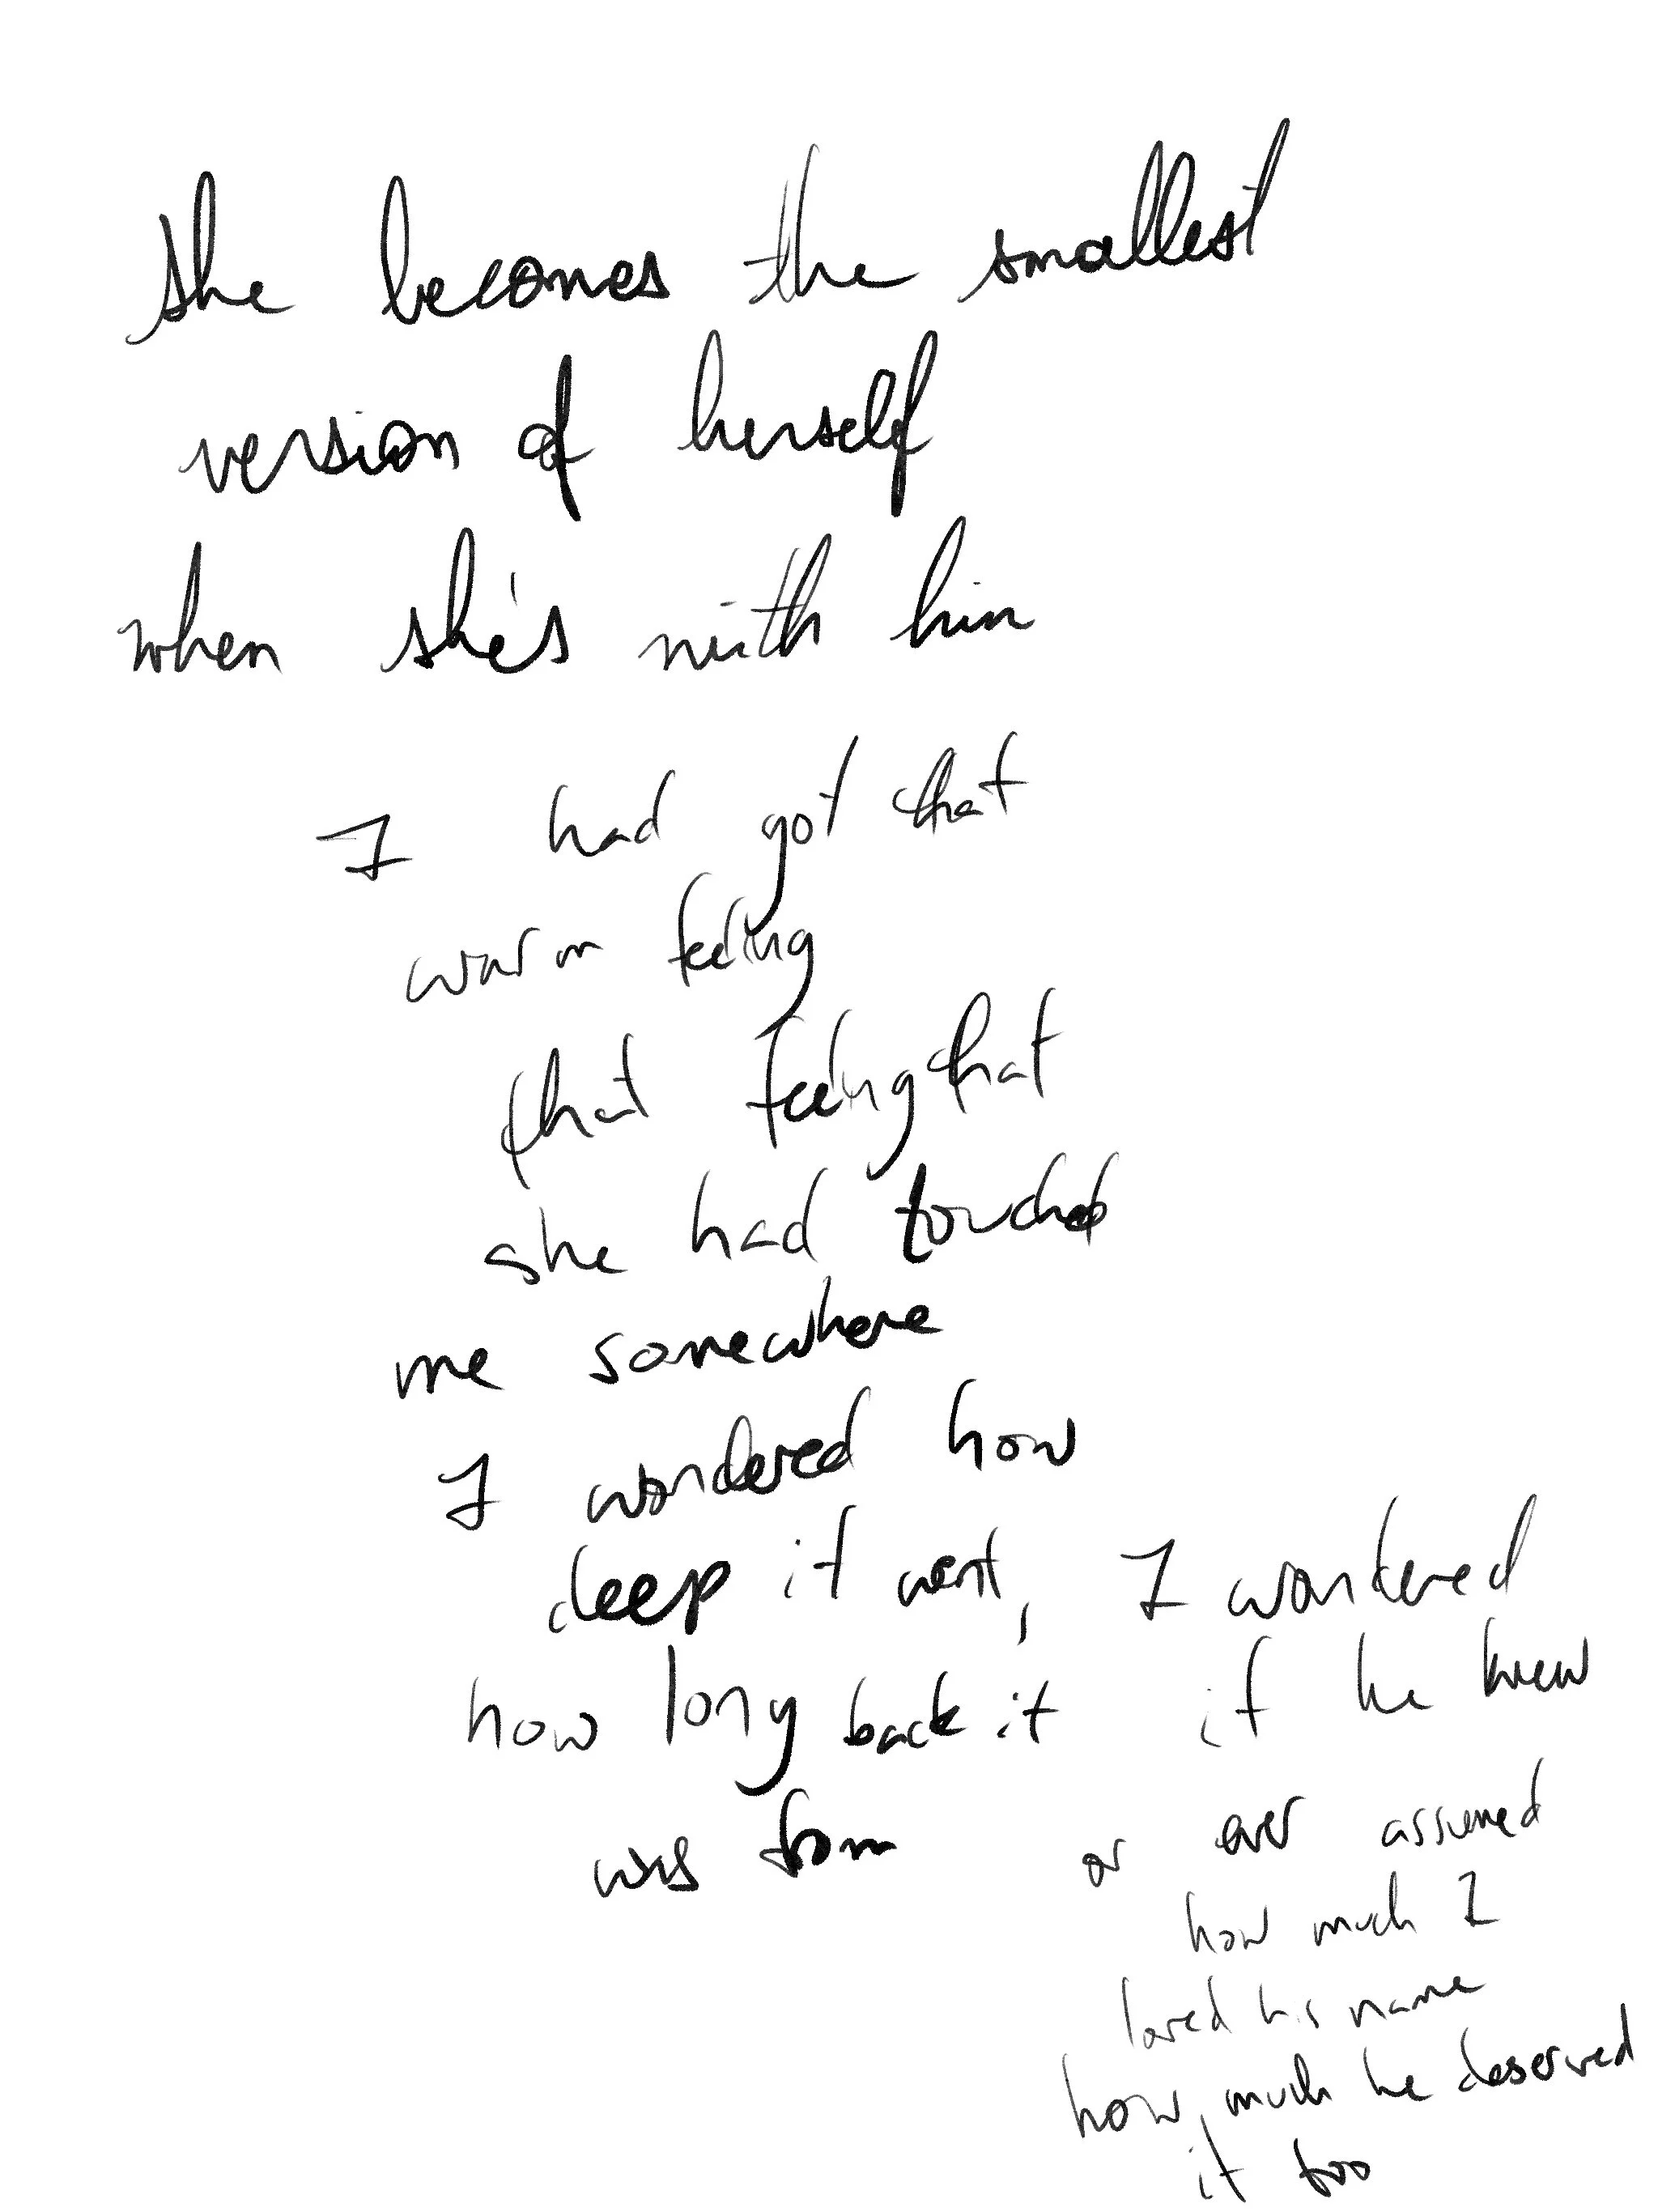 she becomes the smallest
version of herself
when she's with him
I had got that
warm feeling
that feeling that
she had touched
me somewhere
I wondered how
deep it went,
how long back it
was from
I wondered
if he knew
or ever assumed
how much I
loved his name
how much he deserved
it too